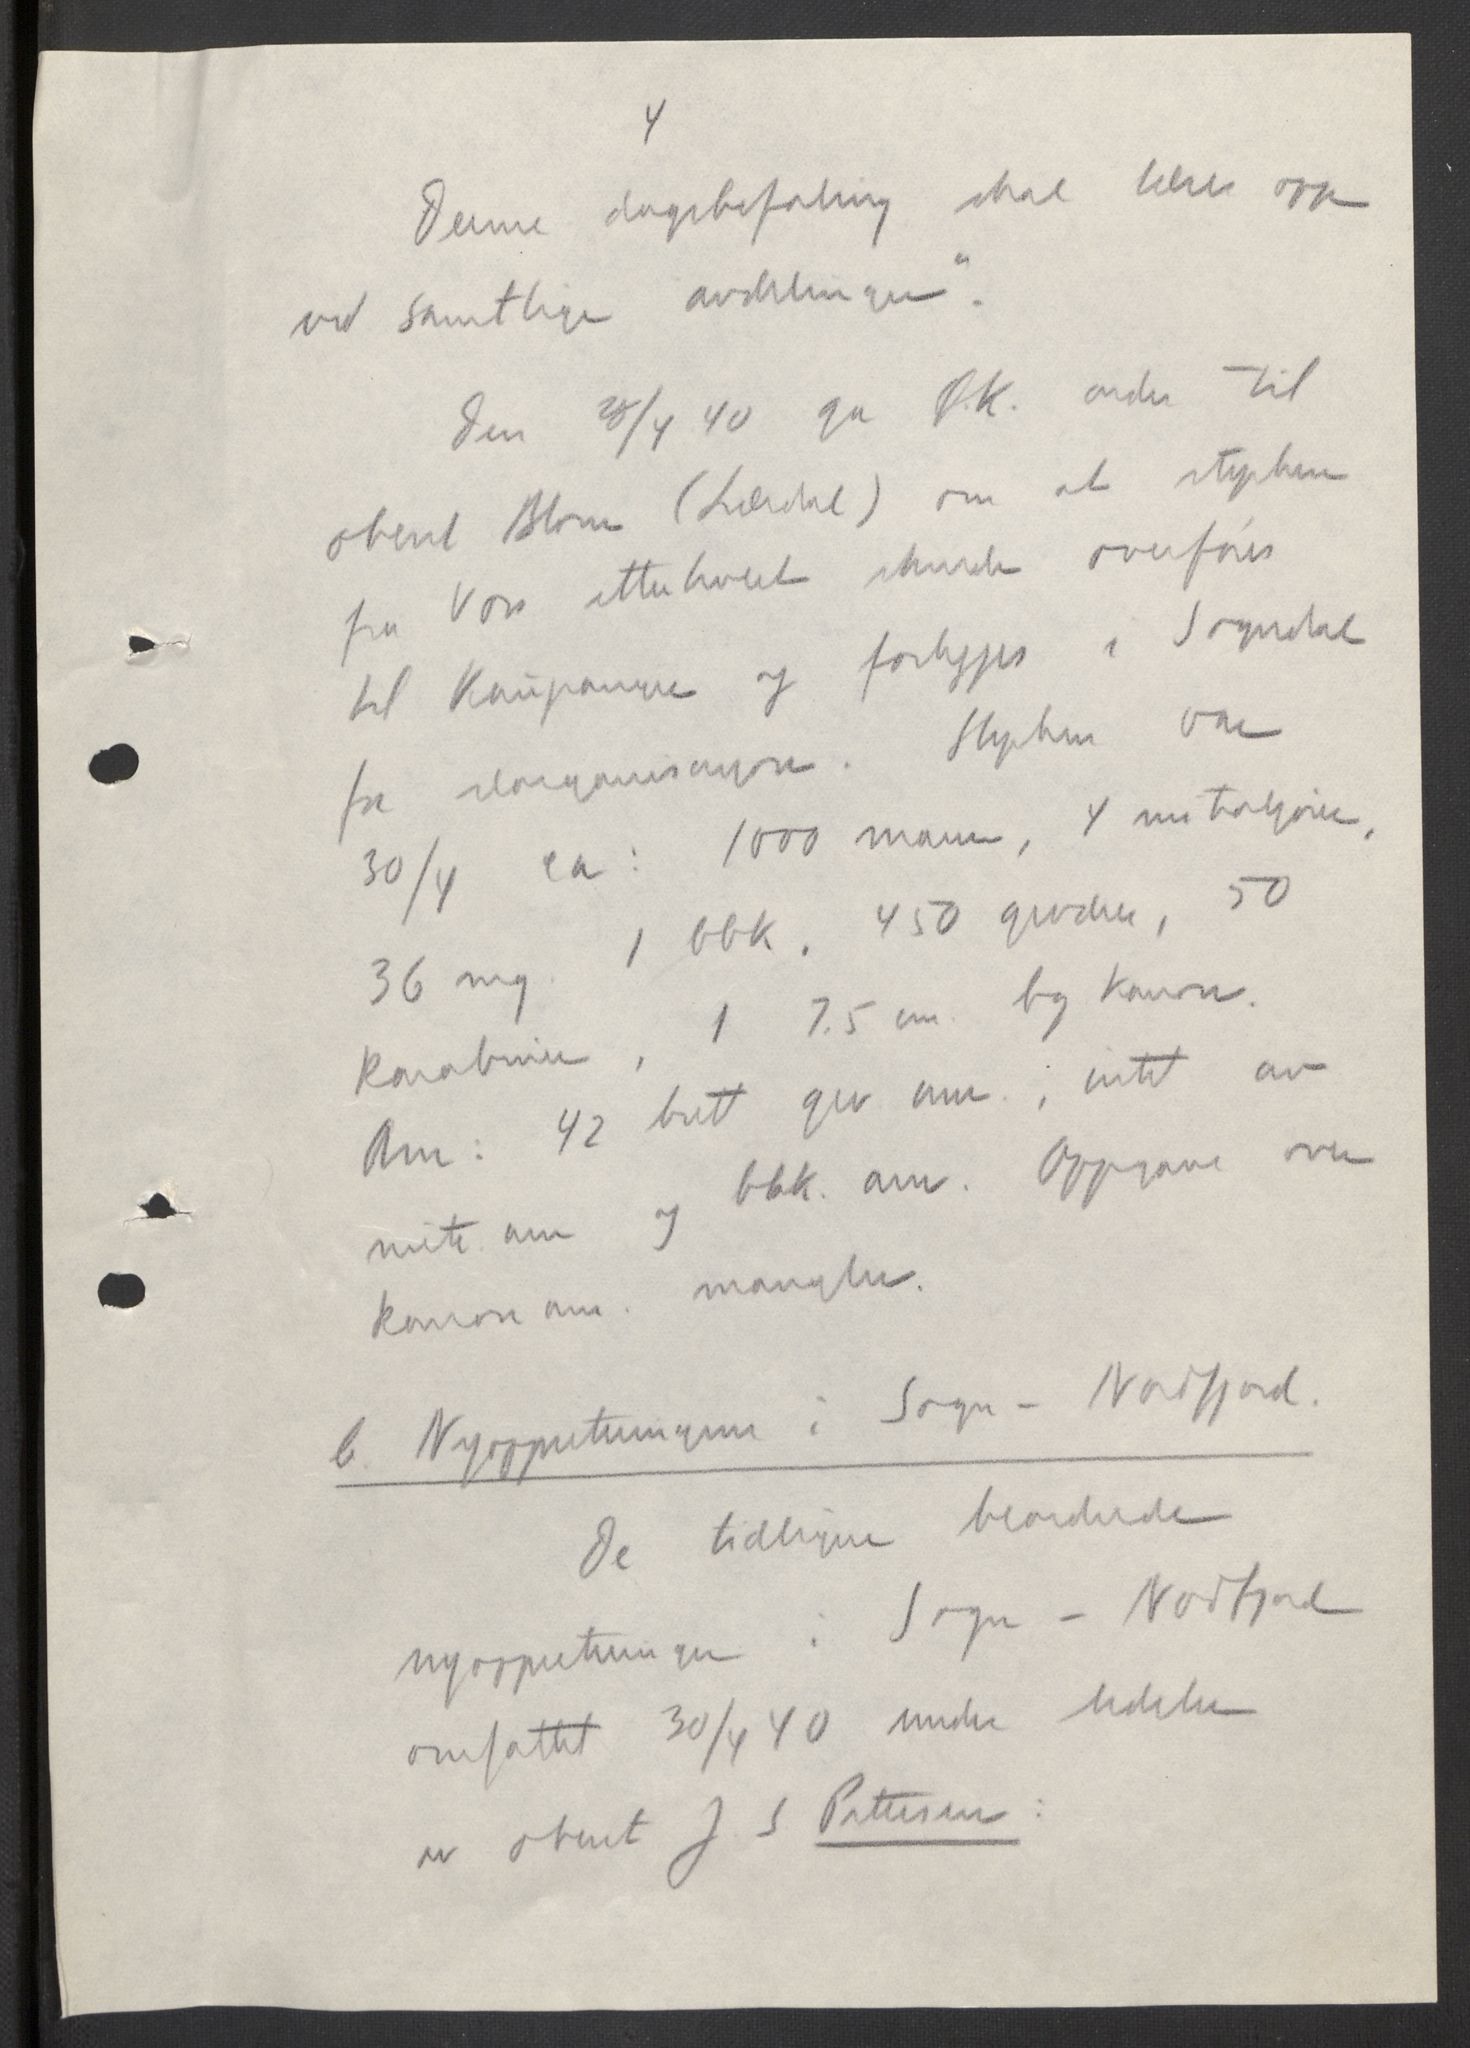 4
Denne dagsbefaling skal leses opp
ved samtlige avdelinger".
Den /4 40 ga Ø.K. ordre til
oberst Blom (Lærdal) om at styrkene
fra Voss etterhvert skulde overføres
til Kaupanger og forlegges i Sogndal
for reorganisasjon. Styrken var
30/4 ca: 1000 mann, 4 mitraljøser,
36 mg. 1 bbk. 450 geværer, 50
karabiner, 1 7.5 cm. bg kanon.
Am: 42 gev am.; intet av
mitr. am og bbk. am. Oppgave over
kanon am. mangler.
b. Nyoppsetningene i Sogn - Nordfjord.
De tidligere beordrede
nyoppsetninger i Sogn - Nordfjord
omfattet 30/4 40 under ledelse
av oberst J S Pettersen: